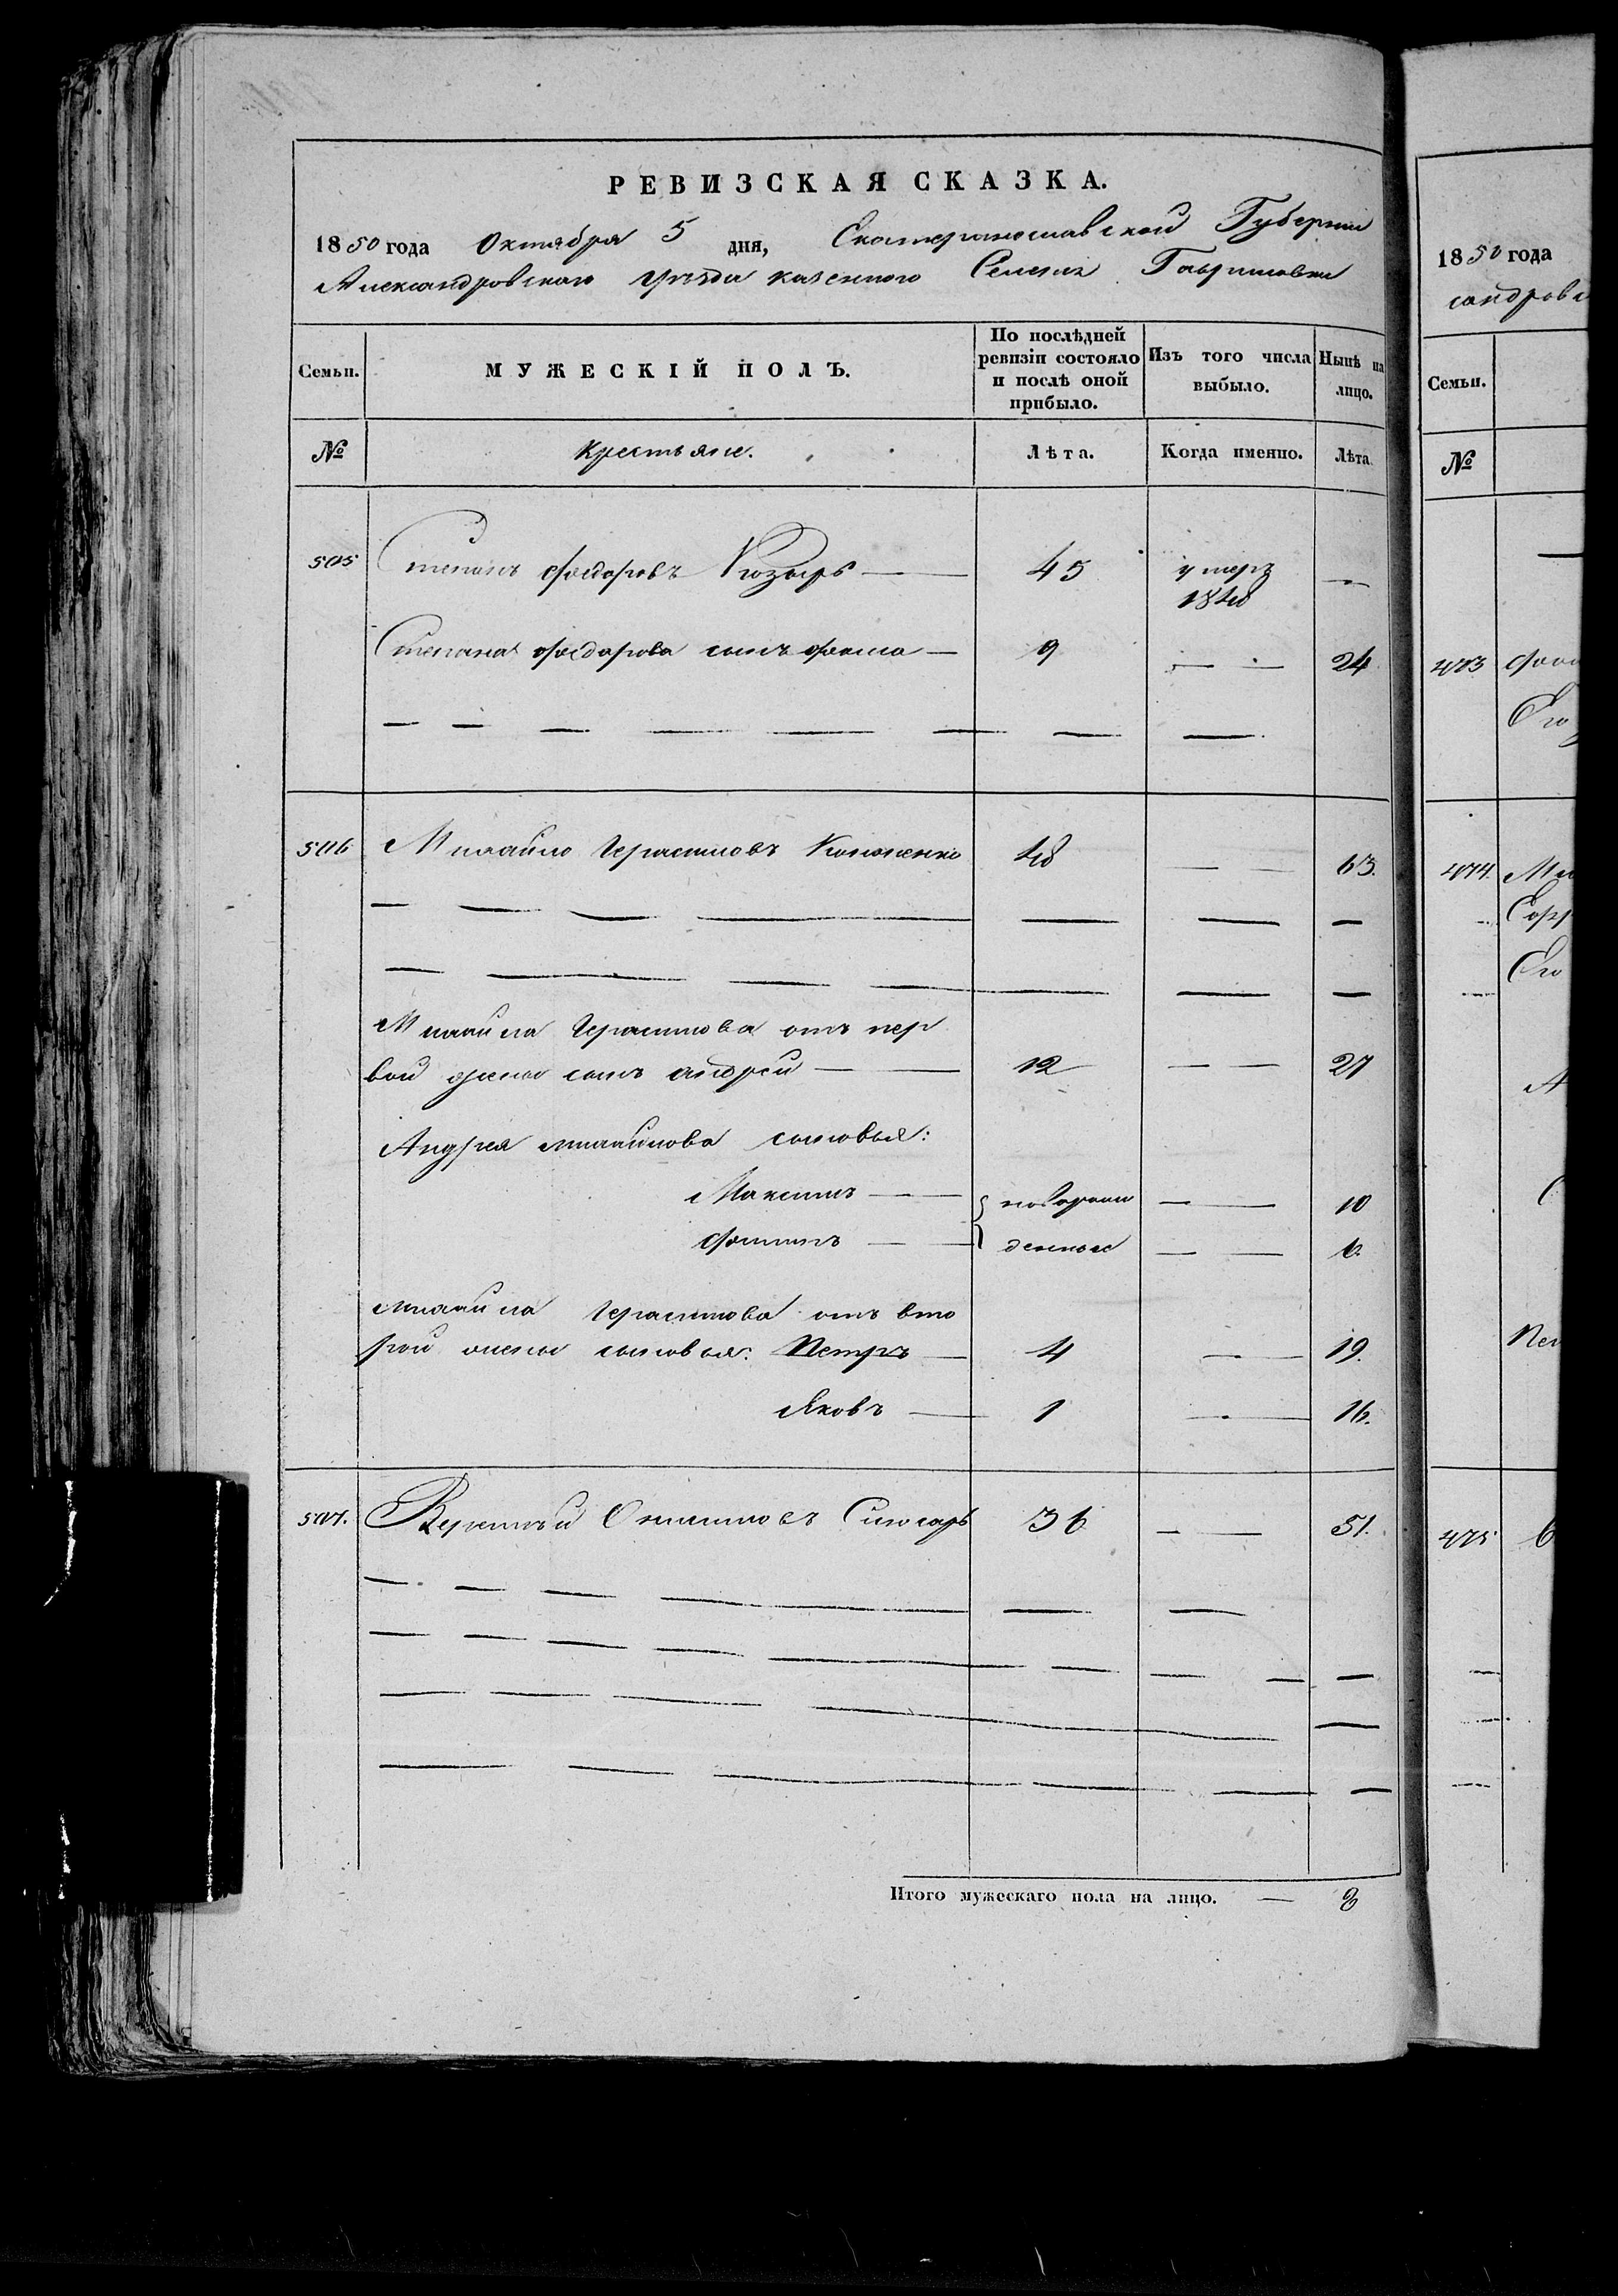 РЕВИЗСКАЯ СКАЗКА.
1850 года Октября 5 дня, Екатеринославской Губернии
Александровскаго уѣзда казенного Селенія Гавриловки
Семьи. МУЖЕСКІЙ ПОЛЪ. По послѣдней ревизіи состояло и послѣ оной прибыло. Изъ того числа выбыло. Нынѣ на лицо.
№ Крестьяне. Лѣта. Когда именно. Лѣта.
505 Степанъ Федоровъ Козырь — 45 умеръ 1848 —
Степана Федорова сынъ Фома — 9 — 24
506 Михайло Герасимовъ 48 — 63.
Михаила Герасимова отъ пер
вой жены сынъ андрей — 12 — 27
Андрея михайлова сыновья:
Максимъ — новорож — 10
— денные — 6.
михаила Герасимова отъ вто
рой жены сыновья: Петръ — 4 — 19.
Яковъ — 1 — 16.
507. 36 — 51.
Итого мужескаго пола на лицо. — 8
1850 года
сандровс
Семьи.
№
473
474.
475